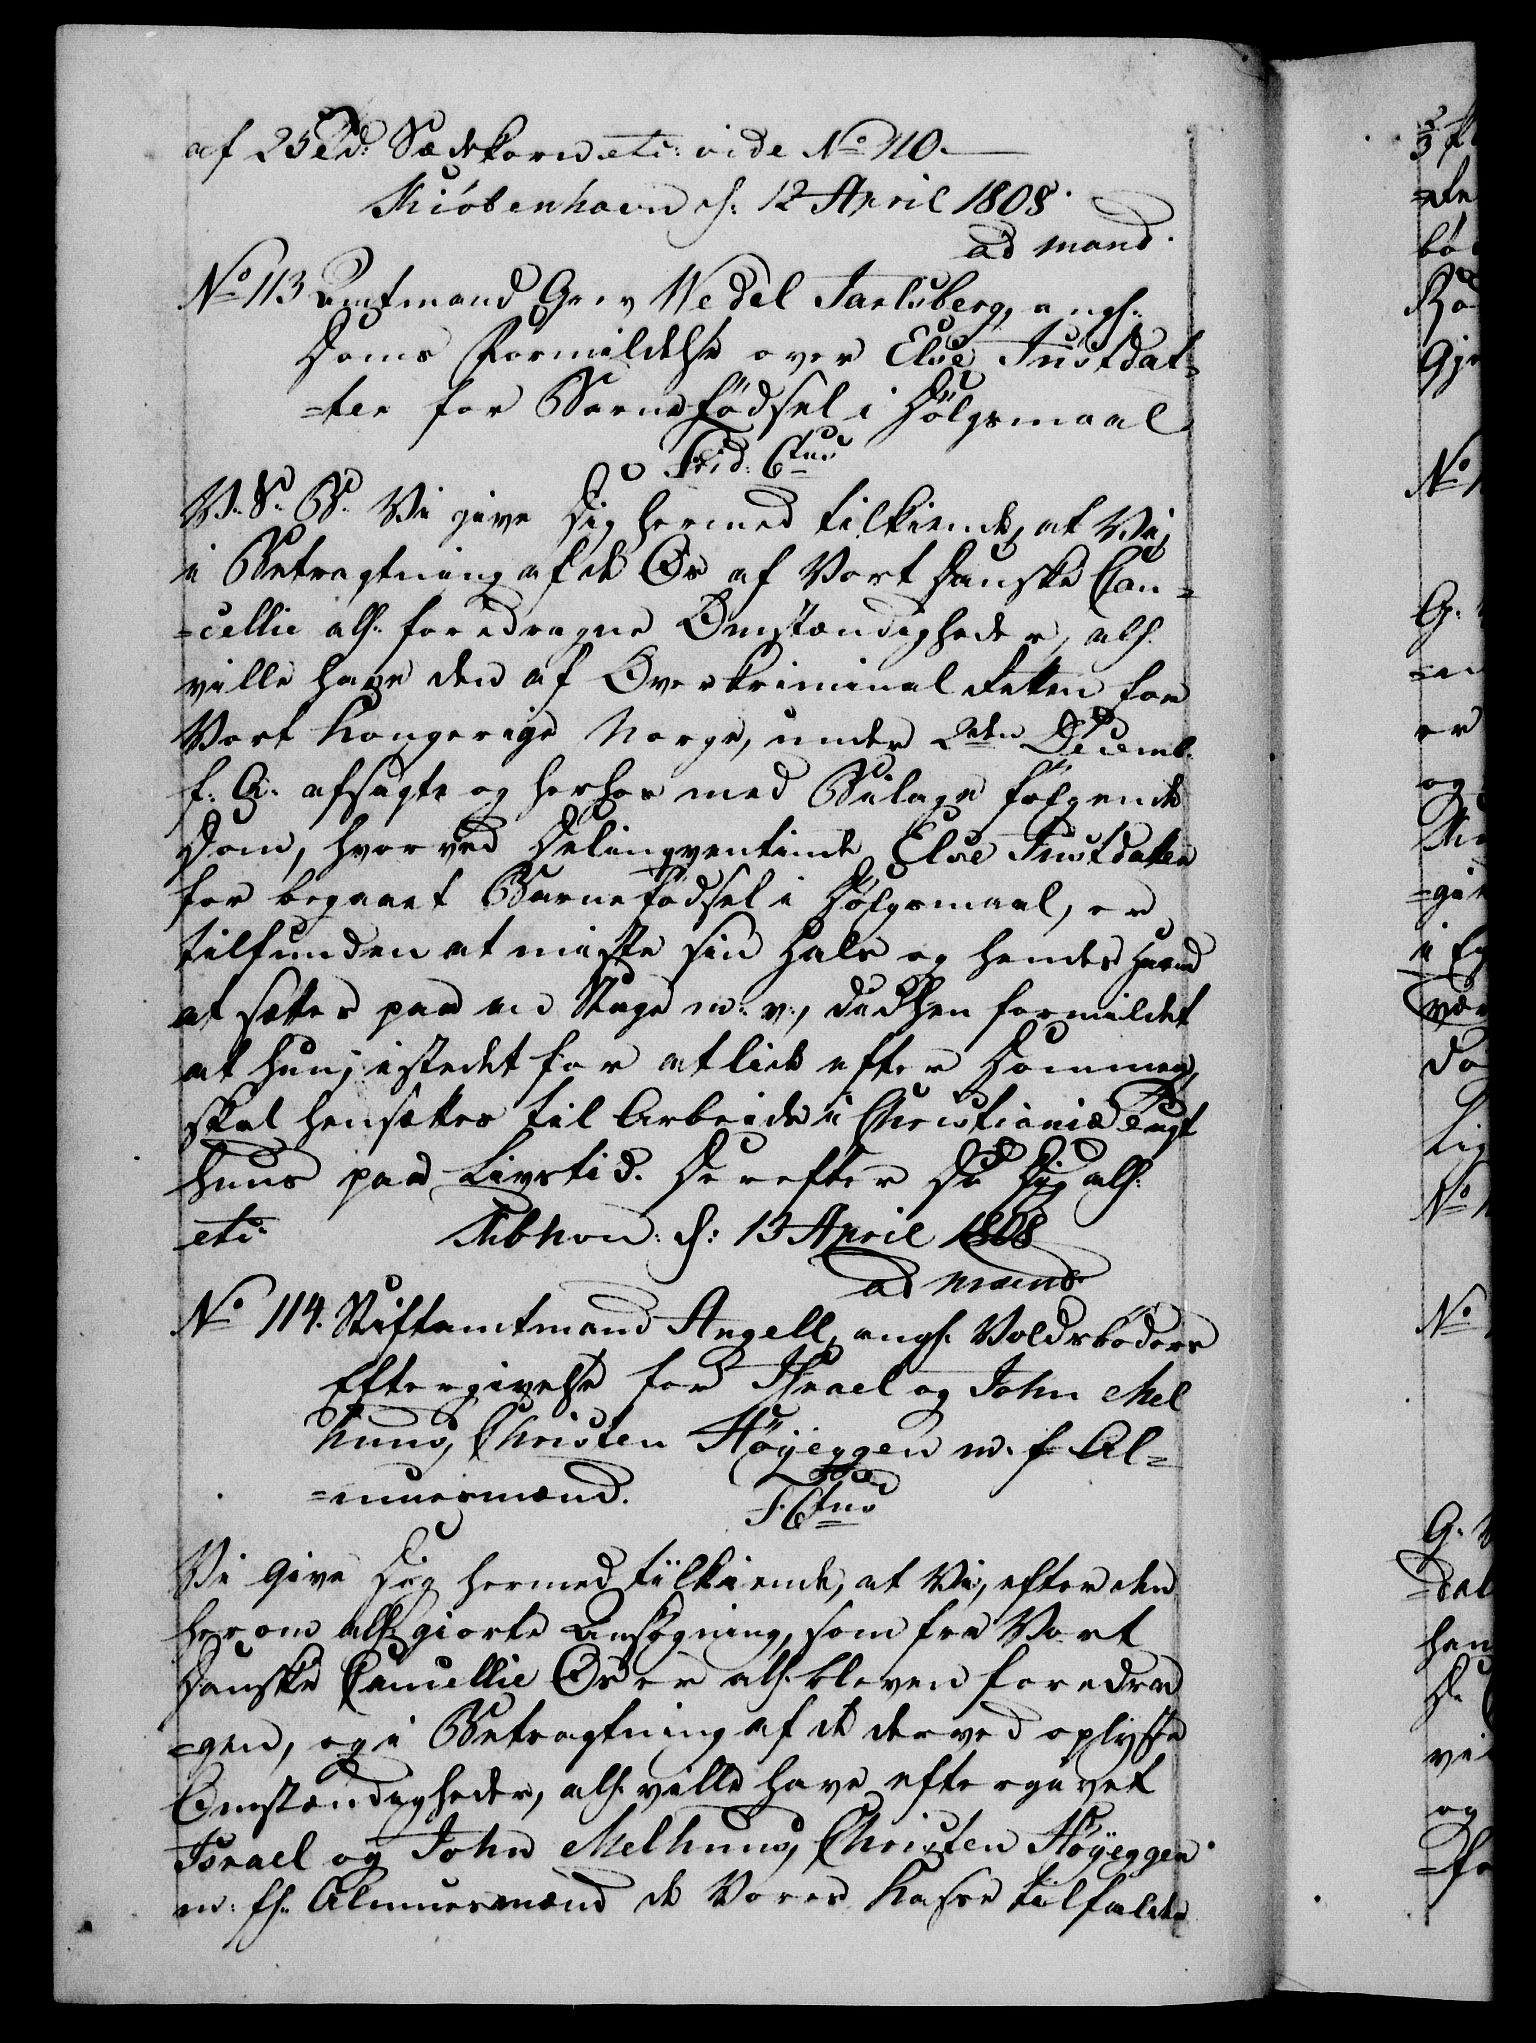 af 25 Td: Sædekorn etc: vide No 110.
Kiöbenhavn d: 12 April 1808.
ad mand.
No 113 Amtmand Grev Wedel Jarlsberg, angl.
Doms Formildelse over Else Justdat=
=ter for Barnefödsel i Dölgsmaal
Frid: 6tus
V. S. B. Vi give Dig hermed tilkiende, at Vi,
i Betragtning af de Os af Vort Danske Can=
=cellie all. foredragne Omstændigheder, all.
ville have den af Overkriminalretten for
Vort Kongerige Norge, under 2den Decemb.
f. A. afsagte og herhos med Bilage fölgende
Dom, hvorved Delinqventinde Else Justdatter
for begaaet Barnefödsel i Dölgsmaal, er
tilfunden at miste sin Hals og hendes Hoved
at sættes paa en Stage m: v:, saaledes formildet
at hun, istedet for at lide efter Dommen,
skal hensættes til Arbeide i Christiania Tugt
huus paa Livstid. Derefter Du Dig all.
etc. Kbhvn: d: 13 April 1808
ad mand.
No 114. Stiftamtmand Angell, angl. Voldsböders
Eftergivelse for Israel og John Mel
huus, Christen Höyeggen m. fl. Al=
=muesmænd.
F. 6tus
Vi give Dig hermed tilkiende, at Vi, efter den
herom all. giorte Ansögning, som fra Vort
Danske Cancellie Os er all. bleven foredra
=gen, og i Betragtning af de derved oplyste
Omstændigheder, all. ville have eftergivet
Israel og John Melhuus, Christen Höyeggen
m: fl. Almuesmænd de Vores Kasse tilfaldne